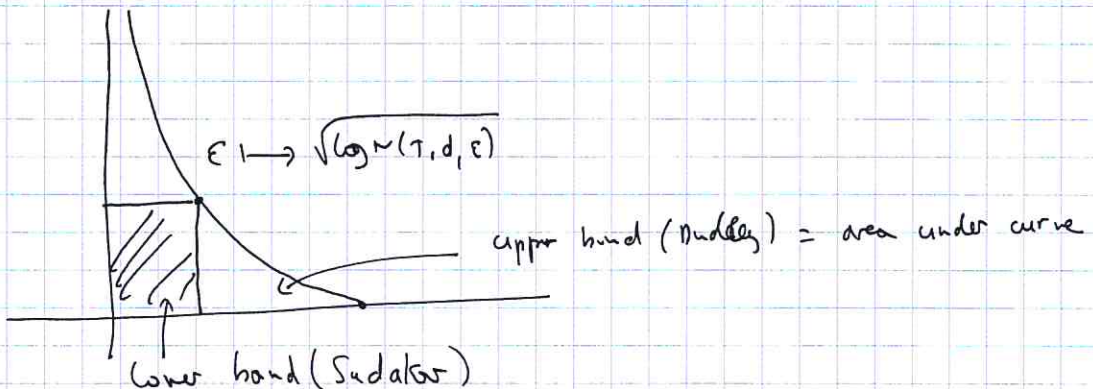 ε ↦ √log N(T, d, ε)
upper bound (Dudley) = area under curve
lower bound (Sudakov)